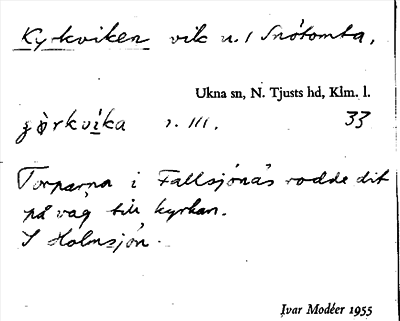 Kyrkviken vik n. / Snötomta.
Ukna sn, N. Tjusts hd, Klm. l.
33
Torparna i Fallsjönäs rodde dit
på väg till kyrkan.
I Holmsjön.
Ivar Modéer 1955